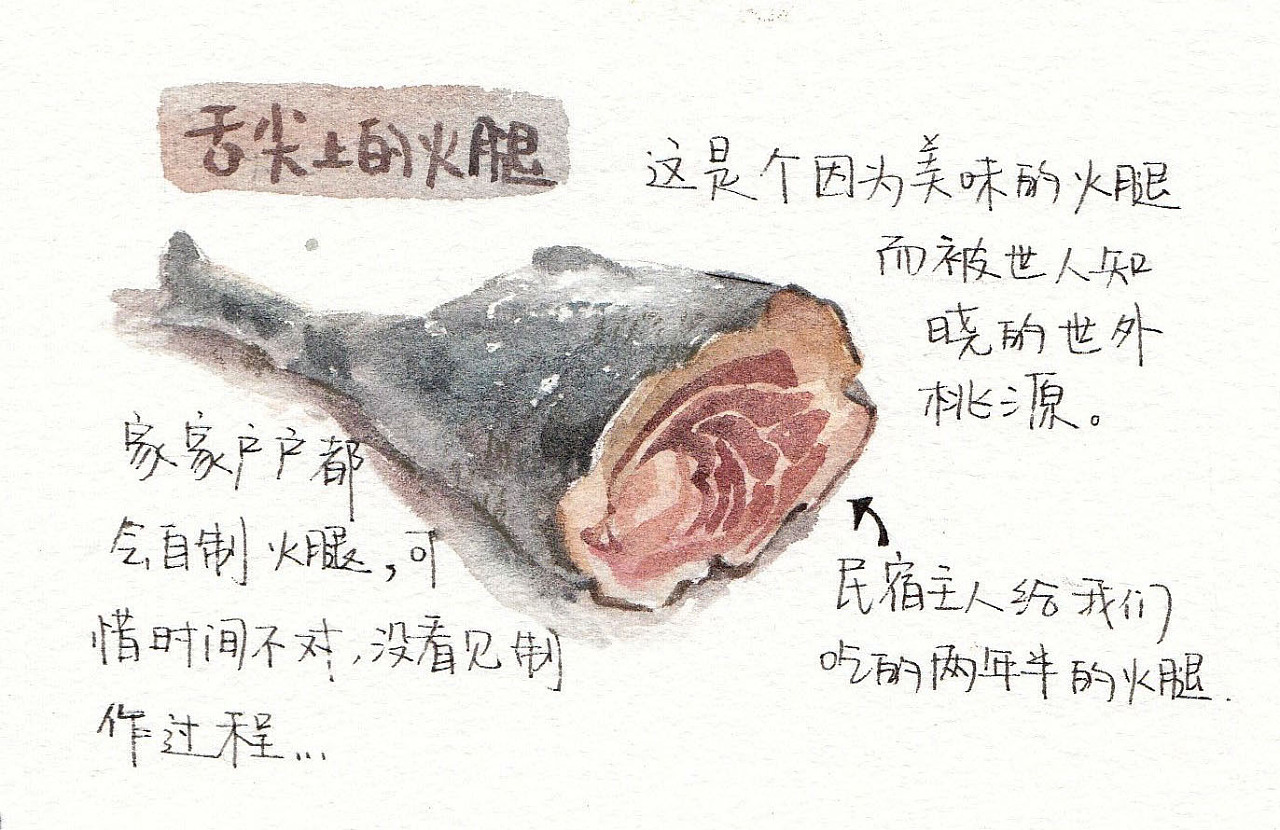 舌尖上的火腿
这是个因为美味的火腿
而被世人知
晓的世外
桃源。
家家户户都
会自制火腿,可
惜时间不对,没看见制
作过程...
民宿主人给我们
吃的两年半的火腿.